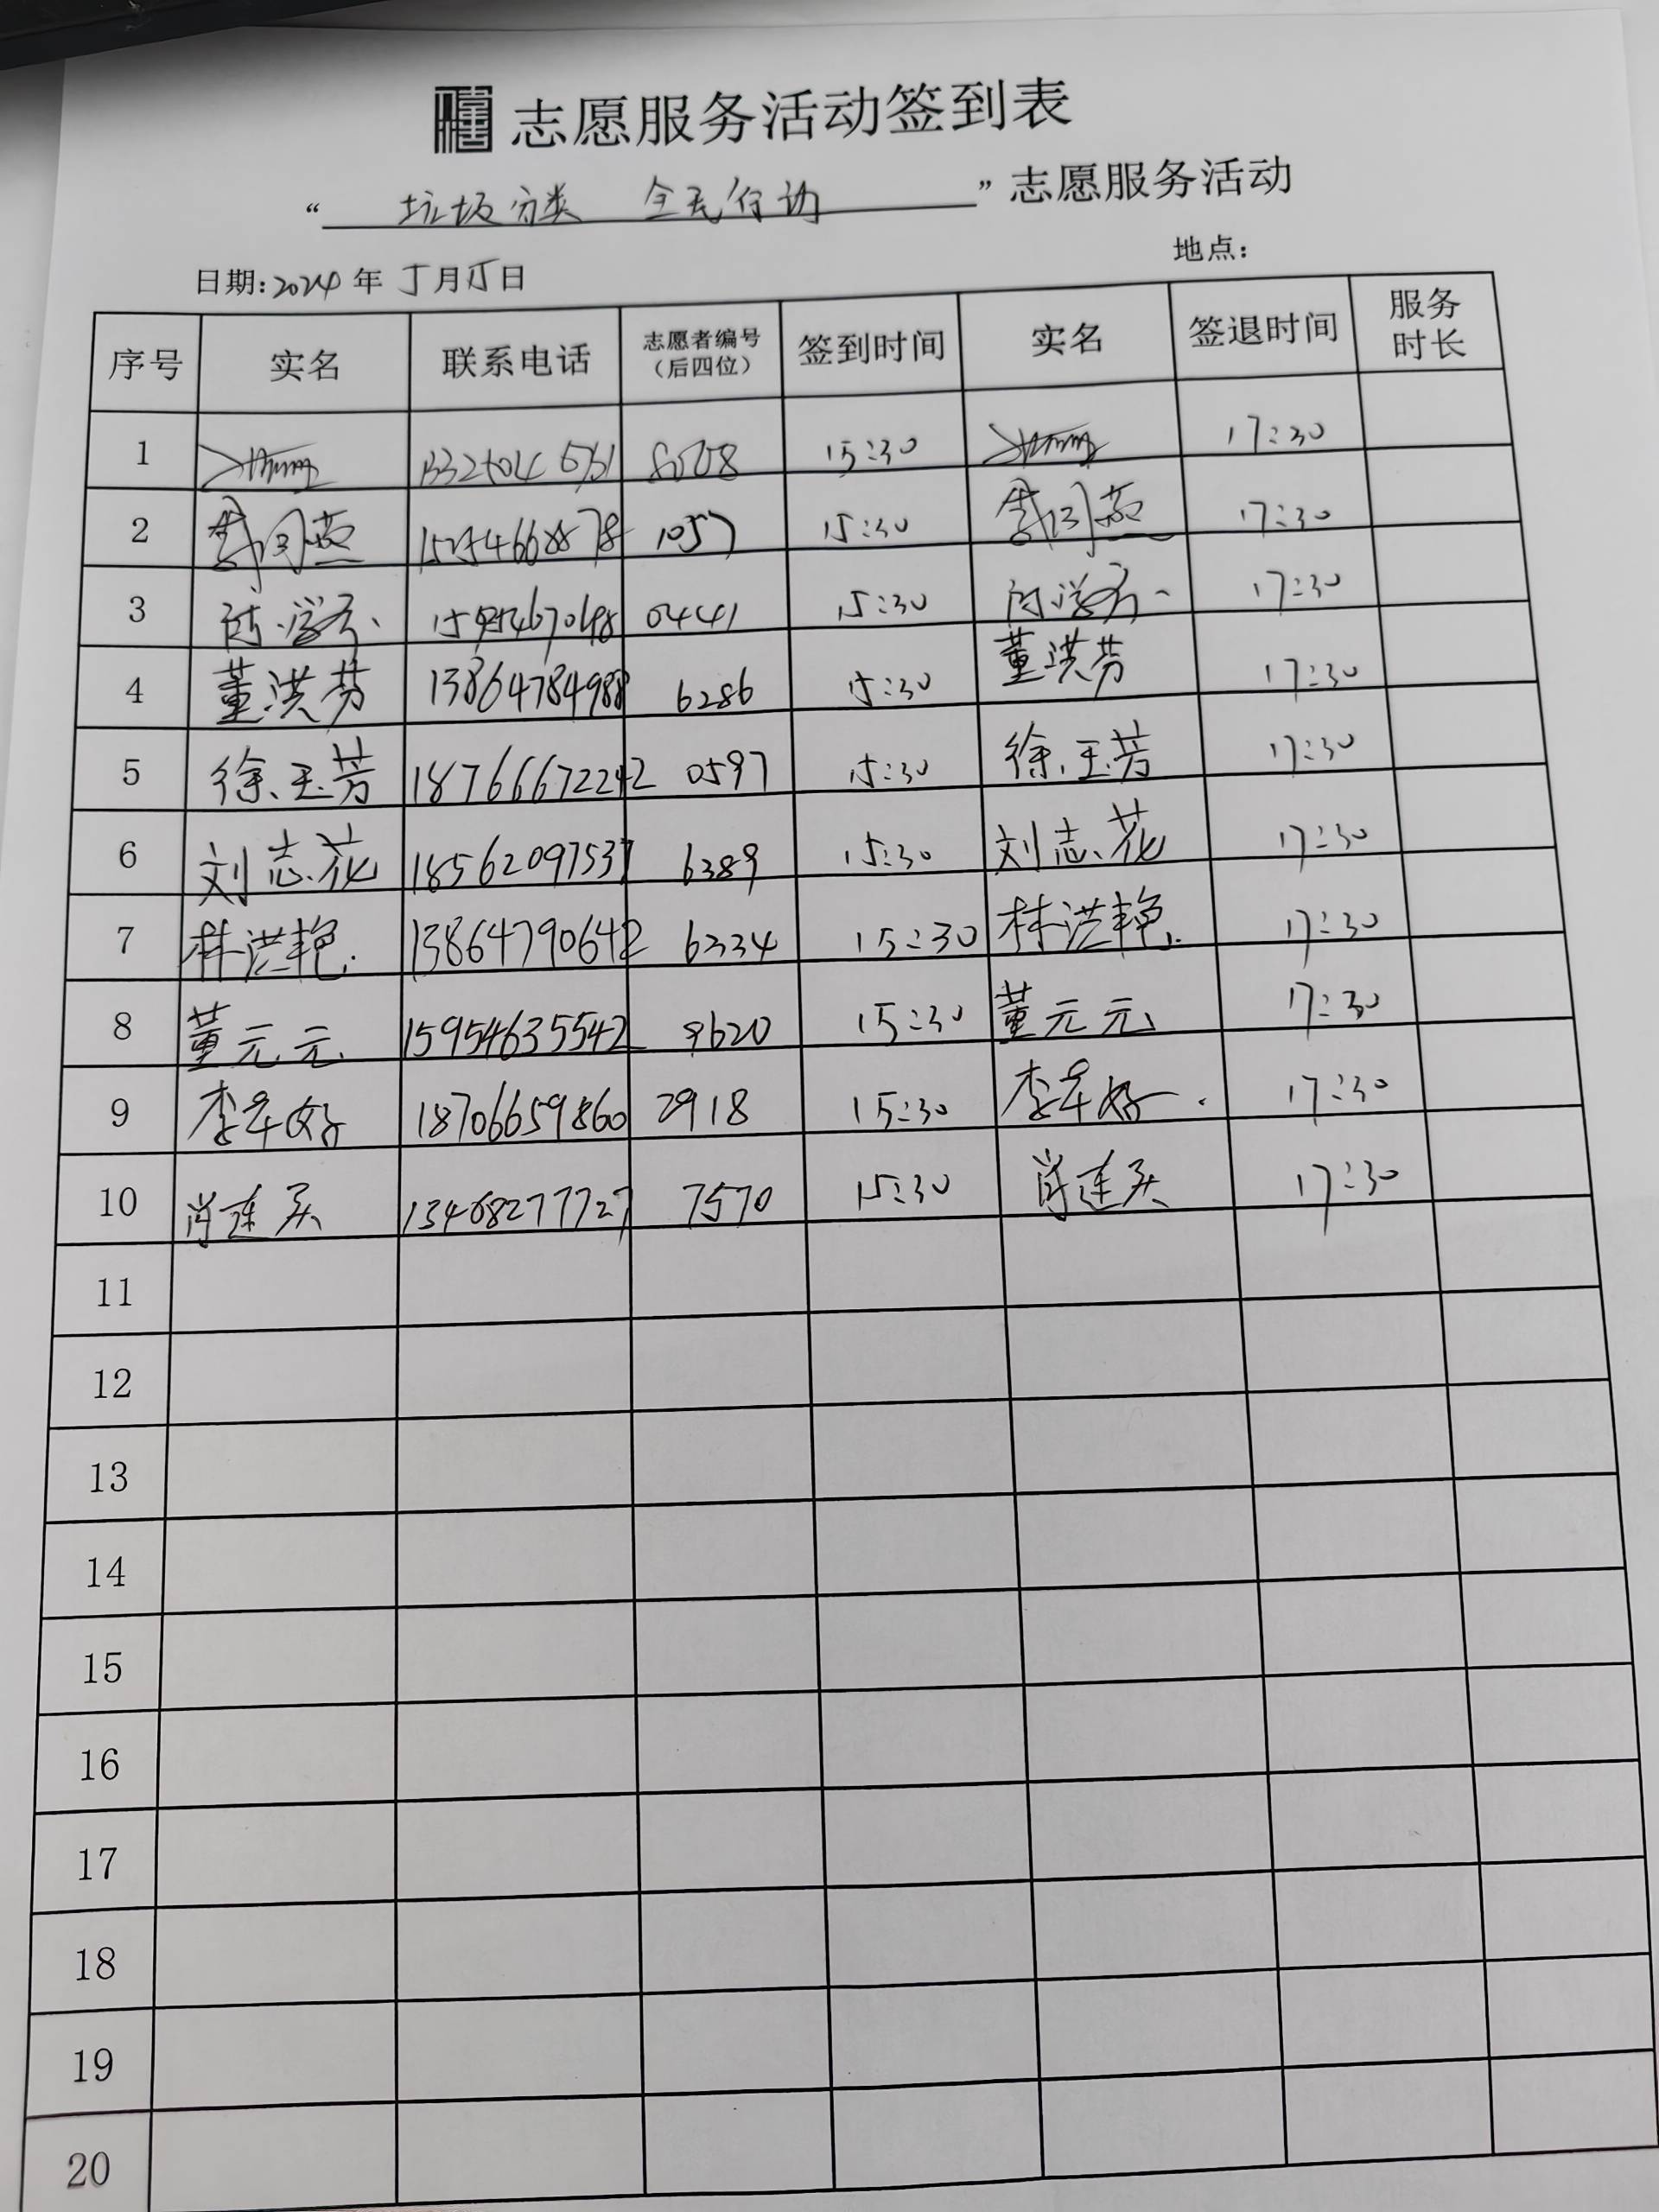 志愿服务活动签到表
“ 垃圾分类 全民行动 ” 志愿服务活动
日期:2024 年 5月15日 地点:
序号 实名 联系电话 志愿者编号（后四位） 签到时间 实名 签退时间 服务时长
1 15:30 17:30
2 1057 15:30 17:30
3 0441 15:30 17:30
4 董洪芬 13864784988 6286 15:30 董洪芬 17:30
5 徐玉芳 18766672242 0597 15:30 徐玉芳 17:30
6 刘志花 18562097537 6389 15:30 刘志花 17:30
7 林洪艳 13864790642 6334 15:30 林洪艳 17:30
8 董元元 15954635542 9620 15:30 董元元 17:30
9 李 18706659860 2918 15:30 李 17:30
10 肖连 13468277727 7570 15:30 肖连 17:30
11
12
13
14
15
16
17
18
19
20